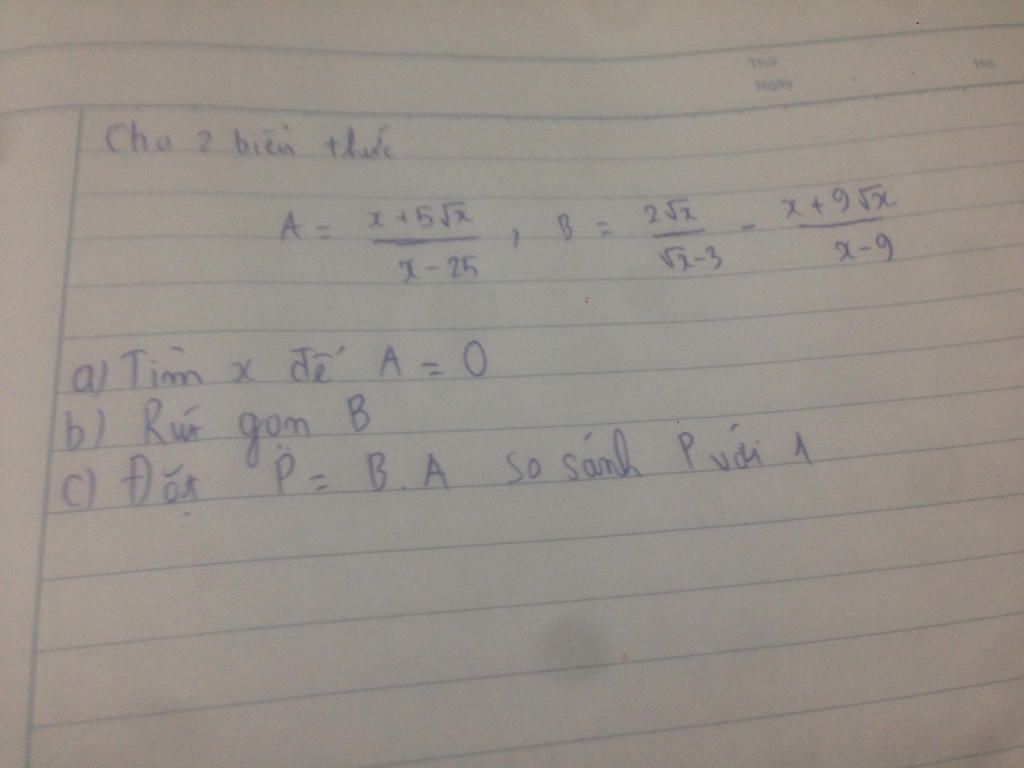 Thứ
Ngày
No.
Cho 2 biển thức
A = \frac{x + 5\sqrt{x}}{x - 25} , B = \frac{2\sqrt{x}}{\sqrt{x} - 3} - \frac{x + 9\sqrt{x}}{x - 9}
a) Tìm x để A = 0
b) Rút gọn B
c) Đặt P = B . A so sánh P với 1